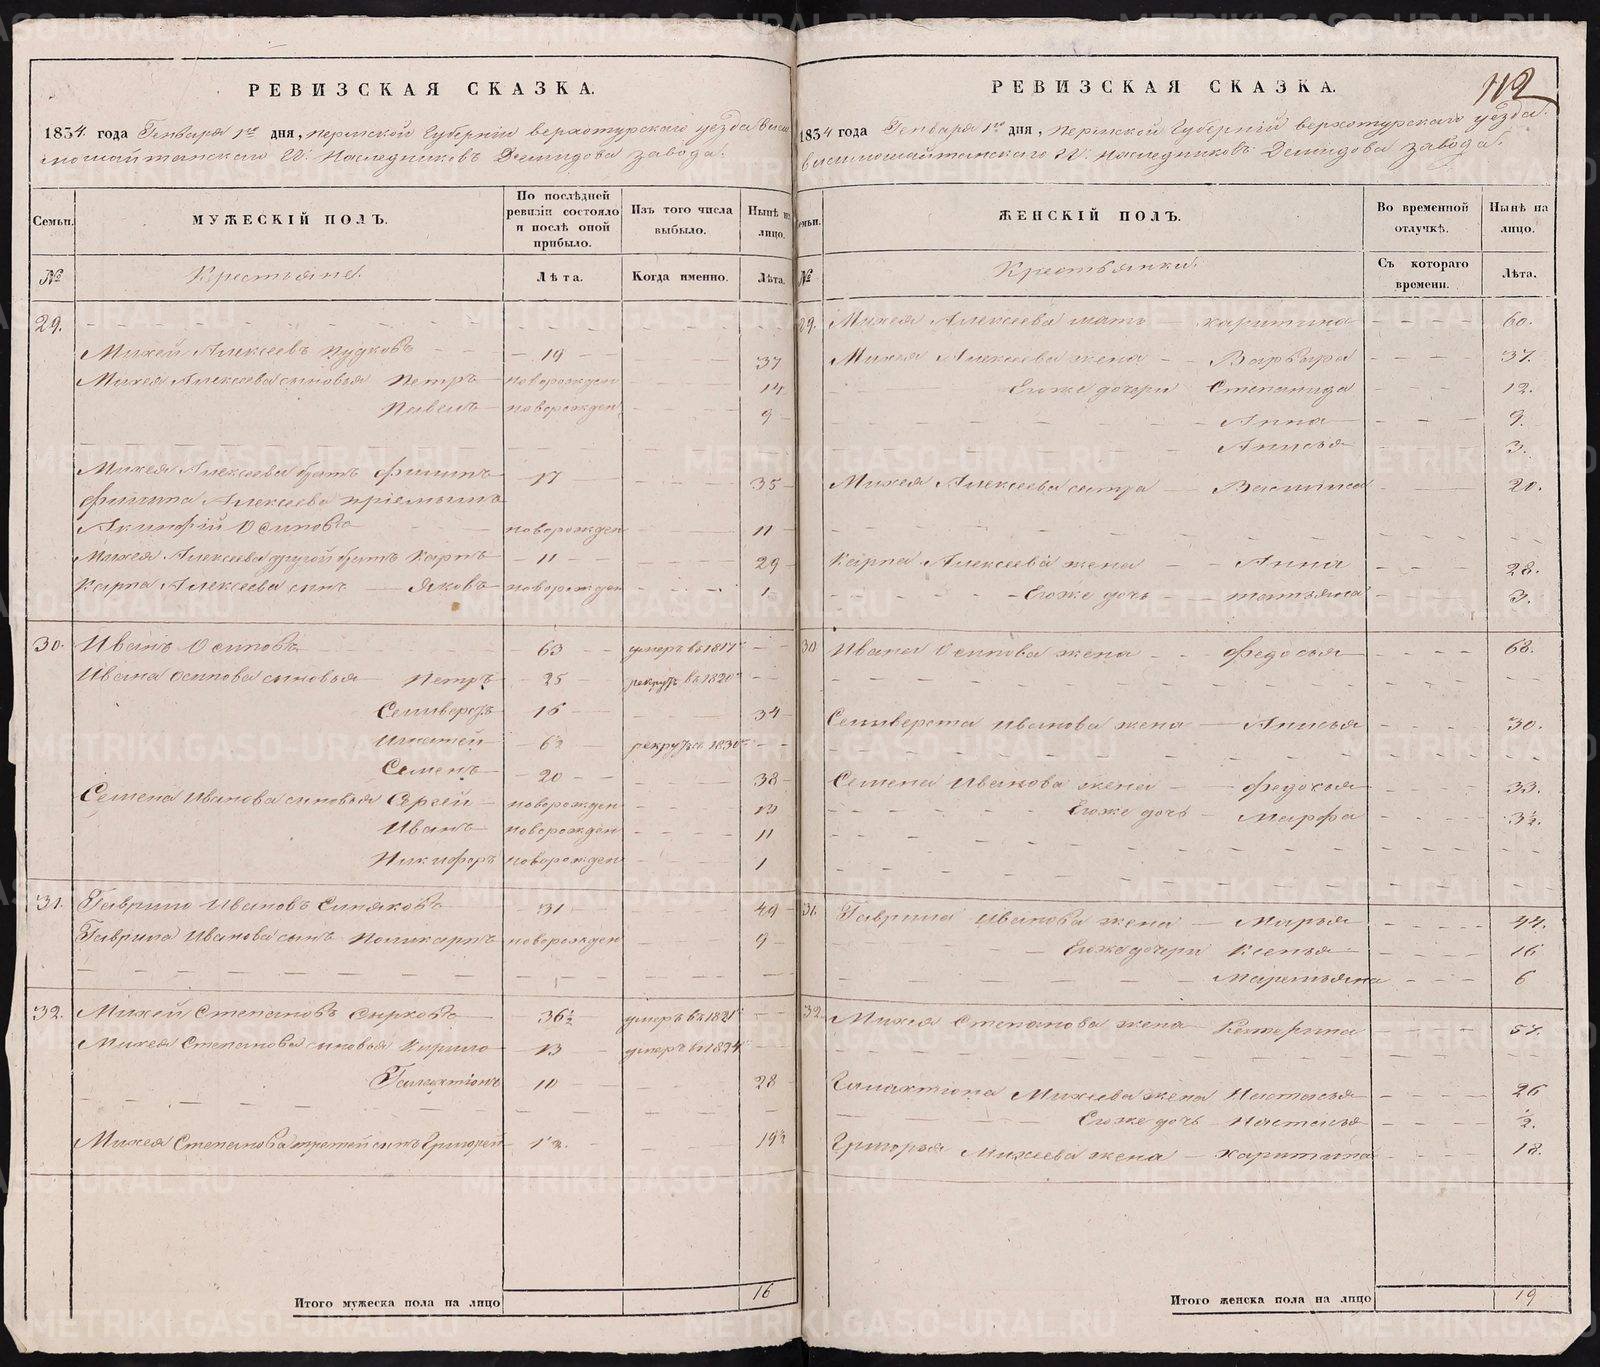 РЕВИЗСКАЯ СКАЗКА.
1834 года Генваря 1го дня, Пермской Губернии Верхотурскаго уезда Виси
мошайтанскаго Гг. Наследниковъ Демидова завода.
Семьи.
МУЖЕСКІЙ ПОЛЪ.
По послѣдней ревизіи состояло и послѣ оной прибыло.
Изъ того числа выбыло.
Нынѣ на лицо.
№
Крестьяне.
Лѣта.
Когда именно.
Лѣта.
29.
Михей Алексеевъ Пудковъ 19 37
Михея Алексеева сыновья Петръ новорожден 14
новорожден 9
Михея Алексеева братъ Филипъ 17 35
Филипа Алексеева приемышъ
Акинфій Осиповъ новорожден 11
Михея Алексеева другой братъ Карпъ 11 29
Карпа Алексеева сынъ Яковъ новорожден 1
30. Иванъ Осиповъ 63 умеръ въ 1817
Ивана Осипова сыновья Петръ 25 рекрутъ въ 1820
Селиверстъ 16 34
Игнатей рекрутъ 1830
Семенъ 20 38
Семена Иванова сыновья новорожден 13
Иванъ новорожден 11
Никифоръ новорожден 1
31. Гаврило Ивановъ Синяковъ 31 49
Гаврила Иванова сынъ Поликарпъ новорожден 9
32. Михей Степановъ Сырковъ 36½ умеръ въ 1821
Михея Степанова сыновья Кирило 13 умеръ въ 1824
Галактіонъ 10 28
Михея Степанова третей сынъ Григорей 1½ 19½
Итого мужеска пола на лицо 16
112
РЕВИЗСКАЯ СКАЗКА.
1834 года Генваря 1го дня, Пермской Губернии Верхотурскаго уезда.
Висимошайтанскаго Гг. Наследниковъ Демидова завода.
Семьи.
ЖЕНСКІЙ ПОЛЪ.
Во временной отлучкѣ.
Нынѣ на лицо.
№
Крестьянки.
Съ котораго времени.
Лѣта.
29. Михея Алексеева мать Харитина 60.
Михея Алексеева жена Варвара 37.
Егоже дочери Степанида 12.
Анна 9.
Анисья 3.
Михея Алексеева сестра Василиса 20.
Карпа Алексеева жена Анна 28.
Егоже дочь Татьяна 3.
30 Ивана Осипова жена Федосья 68.
Селиверста Иванова жена Анисья 30.
Семена Иванова жена Федосья 33.
Егоже дочь Марфа 3½.
31. Гаврила Иванова жена Марья 44.
Егоже дочери Ксенья 16
Маремьяна 6
32 Михея Степанова жена Катерина 57.
Галактіона Михеева жена Настасья 26
Егоже дочь Настасья ½.
Григорья Михеева жена Харитина 18.
Итого женска пола на лицо 19
METRIKI.GASO-URAL.RU